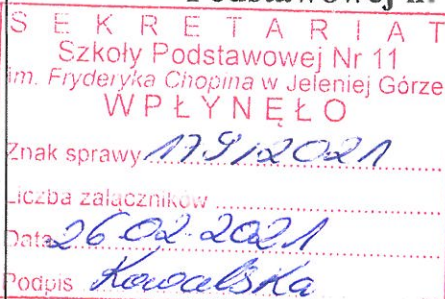 S E K R E T A R I A T
Szkoły Podstawowej Nr 11
im. Fryderyka Chopina w Jeleniej Górze
W P Ł Y N Ę Ł O
Znak sprawy 179/2021
Liczba załączników
Data 26.02.2021
Podpis Kowalska